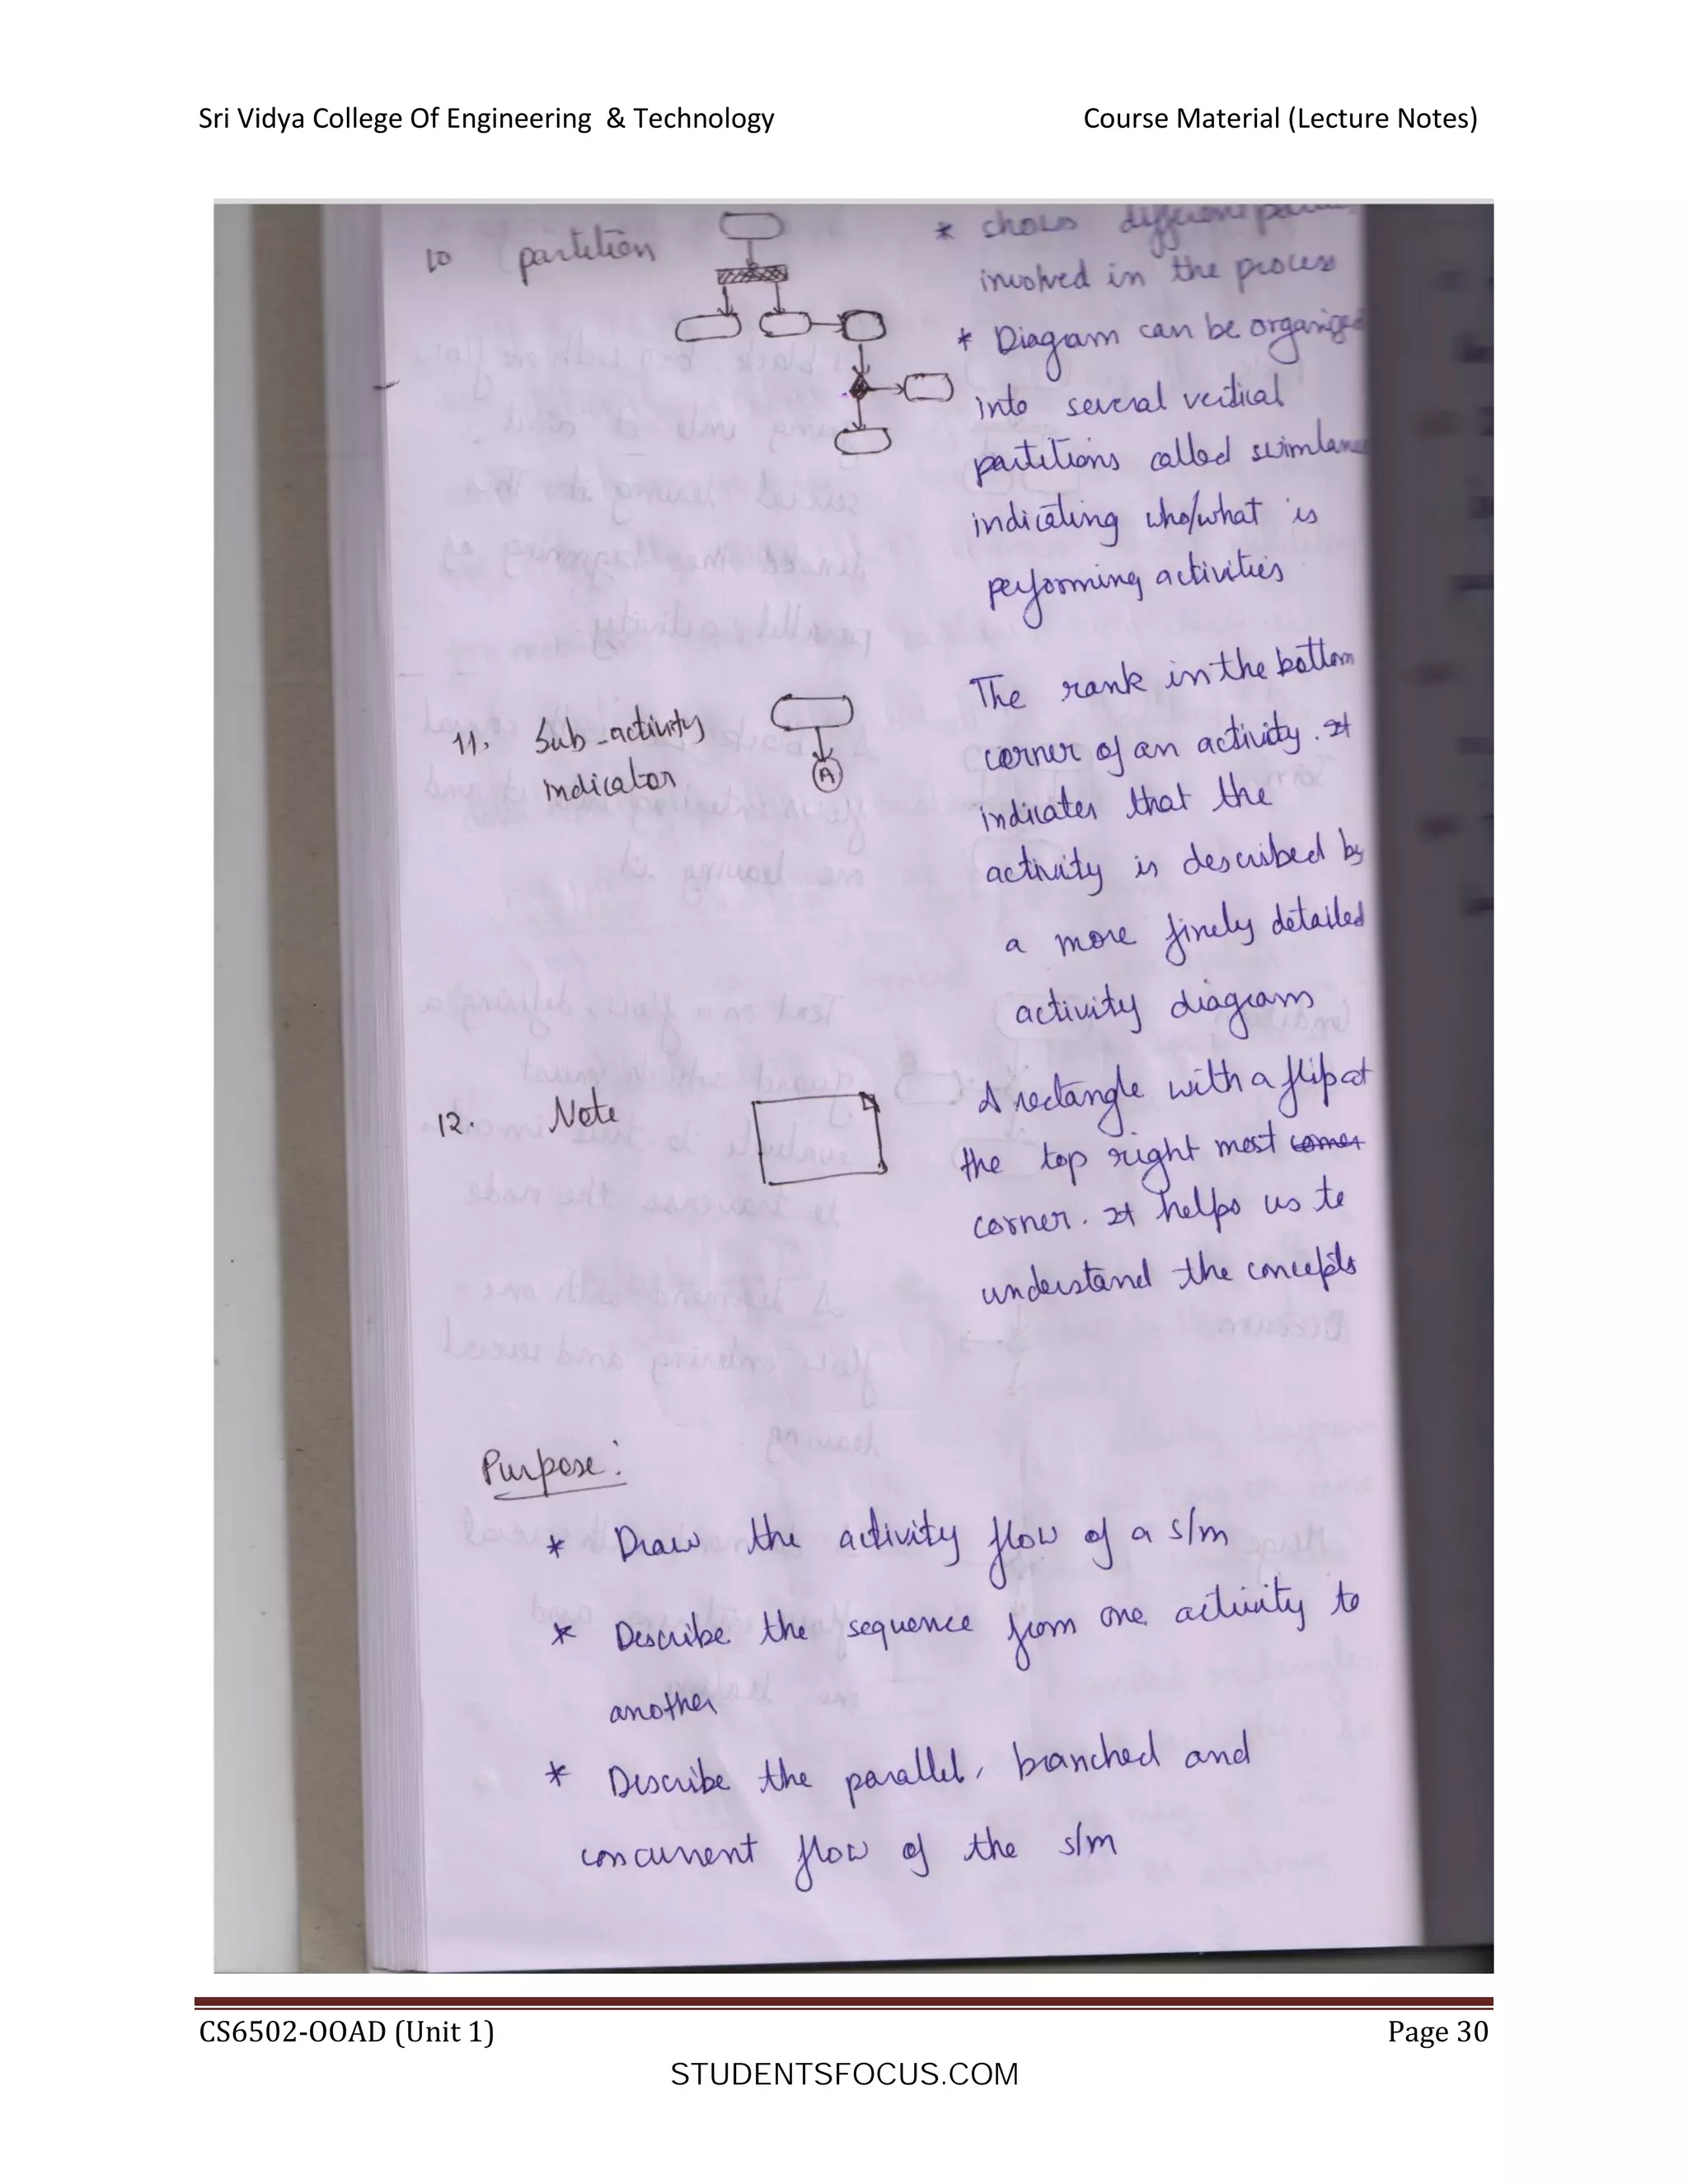 Sri Vidya College Of Engineering & Technology Course Material (Lecture Notes)
10 partition
* shows different
involved in the process
* Diagram can be organized
into several vertical
partitions called swimlanes
indicating who/what is
performing activities
11. Sub-activity
indicator
A
The rank in the bottom
corner of an activity. It
indicates that the
activity is described by
a more finely detailed
activity diagrams
12. Note
A rectangle with a flip at
the top right most corner
corner. It helps us to
understand the concepts
Purpose:
* Draw the activity flow of a s/m
* Describe the sequence from one activity to
another
* Describe the parallel, branched and
concurrent flow of the s/m
CS6502-OOAD (Unit 1) Page 30
STUDENTSFOCUS.COM